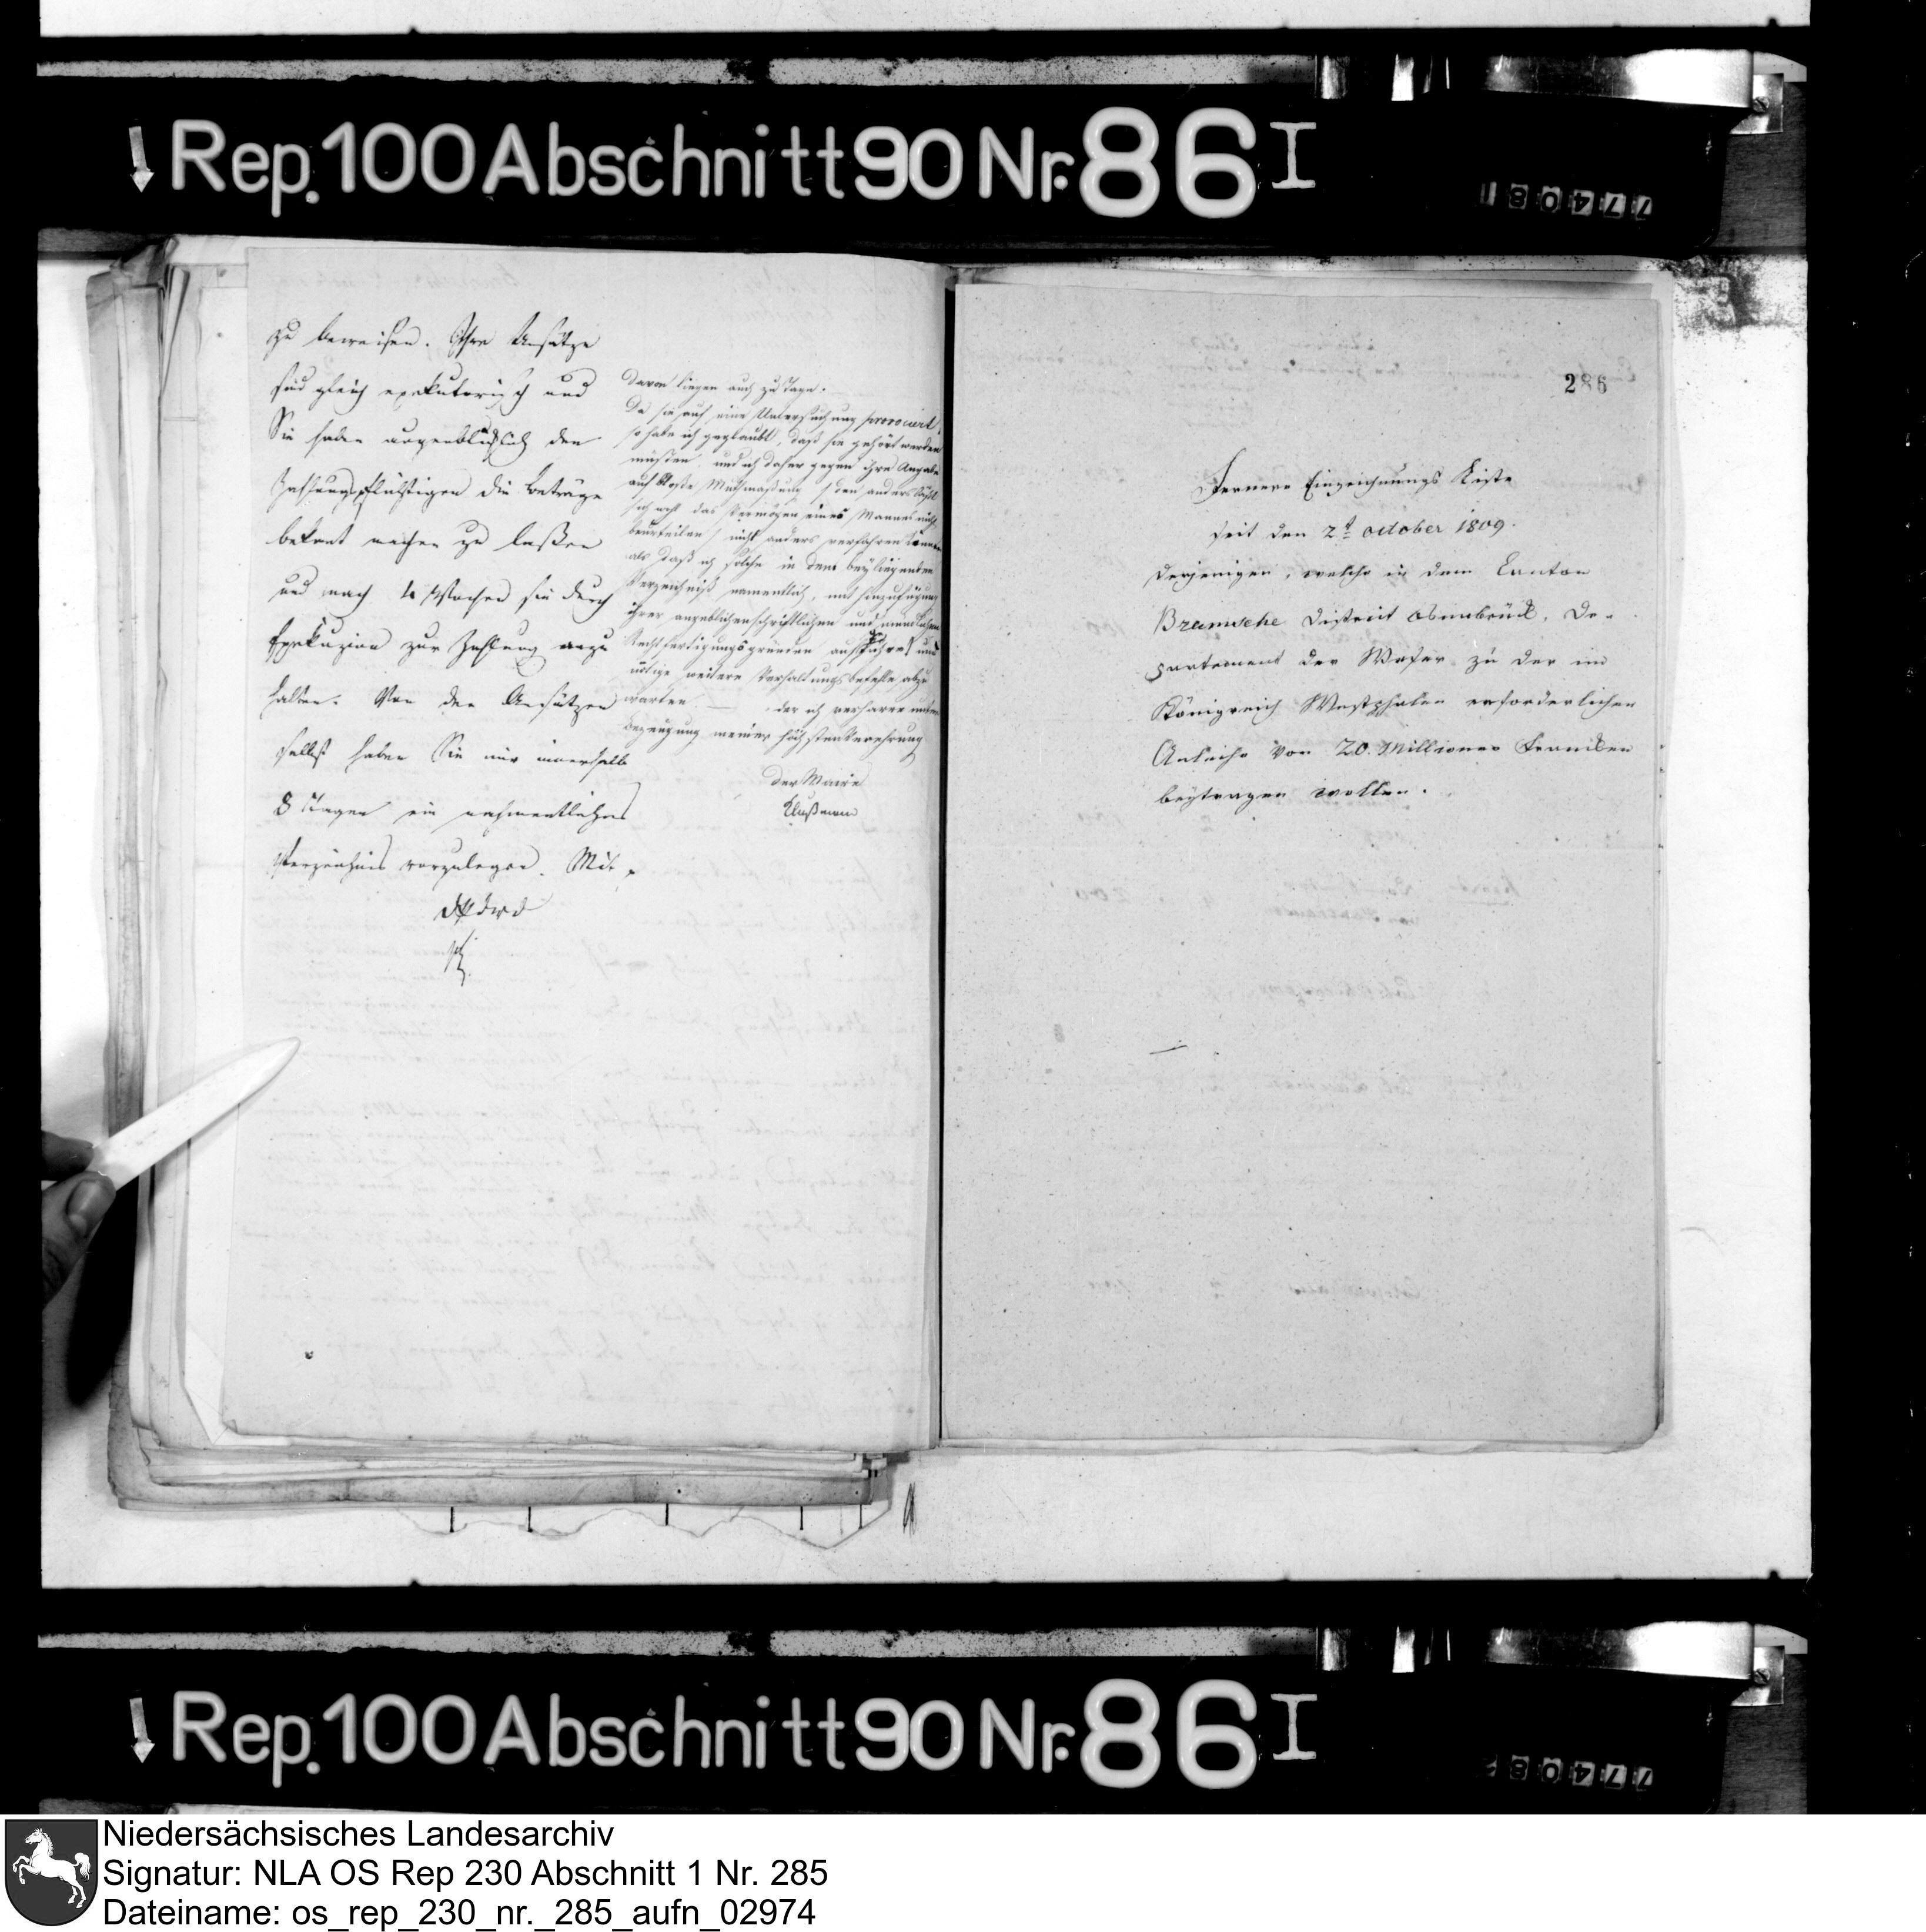 Rep. 100 Abschnitt 90 Nr. 86 I
180477
zu beweisen. Ihre Ansätze
sind gleich exekutorisch und
Sie haben augenblicklich den
Zahlungspflichtigen die Beträge
bekant machen zu laßen
und nach 4 Wochen sie durch
Exekuzion zur Zahlung anzu
halten. Von den Ansätzen
selbst haben Sie mir innerhalb
8 Tagen ein nahmentliches
Verzeichnis vorzulegen. Mit
davon liegen auch zu Tage.
Da sie auf eine Untersuchung provociert,
so habe ich geglaubt, daß sie gehört werden
müßen, und ich daher gegen ihre Angabe
auf bloße Muthmaßung / den anders läßt
sich wohl das Vermögen eines Mannes nicht
beurteilen / nicht anders verfahren könne
als daß ich solche in dem beyliegenden
Verzeichniß namentlich, mit hinzufügung
ihrer angeblichen schriftlichen und mündlichen
Rechtfertigungsgründen aufführe und
nötige weitere Verhaltungsbefehle abzu
warten. — der ich verharre unter
Bezeugung meiner höchsten Verehrung
der Maire
Klußmann
286
Fernere Einzeichnungs Liste
seit den 2t october 1809.
derjenigen, welche in dem Canton
Bramsche District Osnabrück, De-
partement der Weser zu der im
Königreich Westphalen erforderlichen
Anleihe von 20. Millionen Franken
beytragen wollen.
Rep. 100 Abschnitt 90 Nr. 86 I
80477
Niedersächsisches Landesarchiv
Signatur: NLA OS Rep 230 Abschnitt 1 Nr. 285
Dateiname: os_rep_230_nr._285_aufn_02974